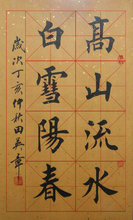 高山流水
白雪陽春
歲次丁亥仲秋田英章